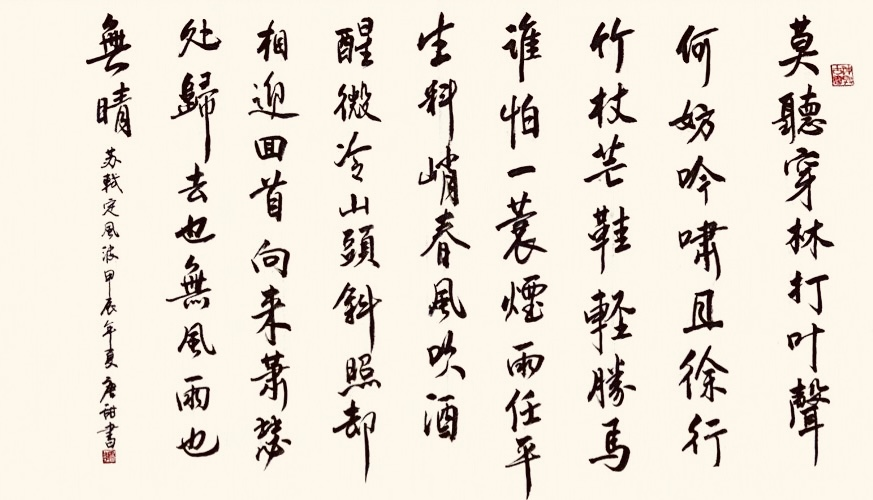 莫聽穿林打叶聲
何妨吟嘯且徐行
竹杖芒鞋軽勝馬
誰怕一蓑煙雨任平
生料峭春風吹酒
醒微冷山頭斜照却
相迎回首向来蕭瑟
处歸去也無風雨也
無晴
苏軾定風波甲辰年夏唐甜書